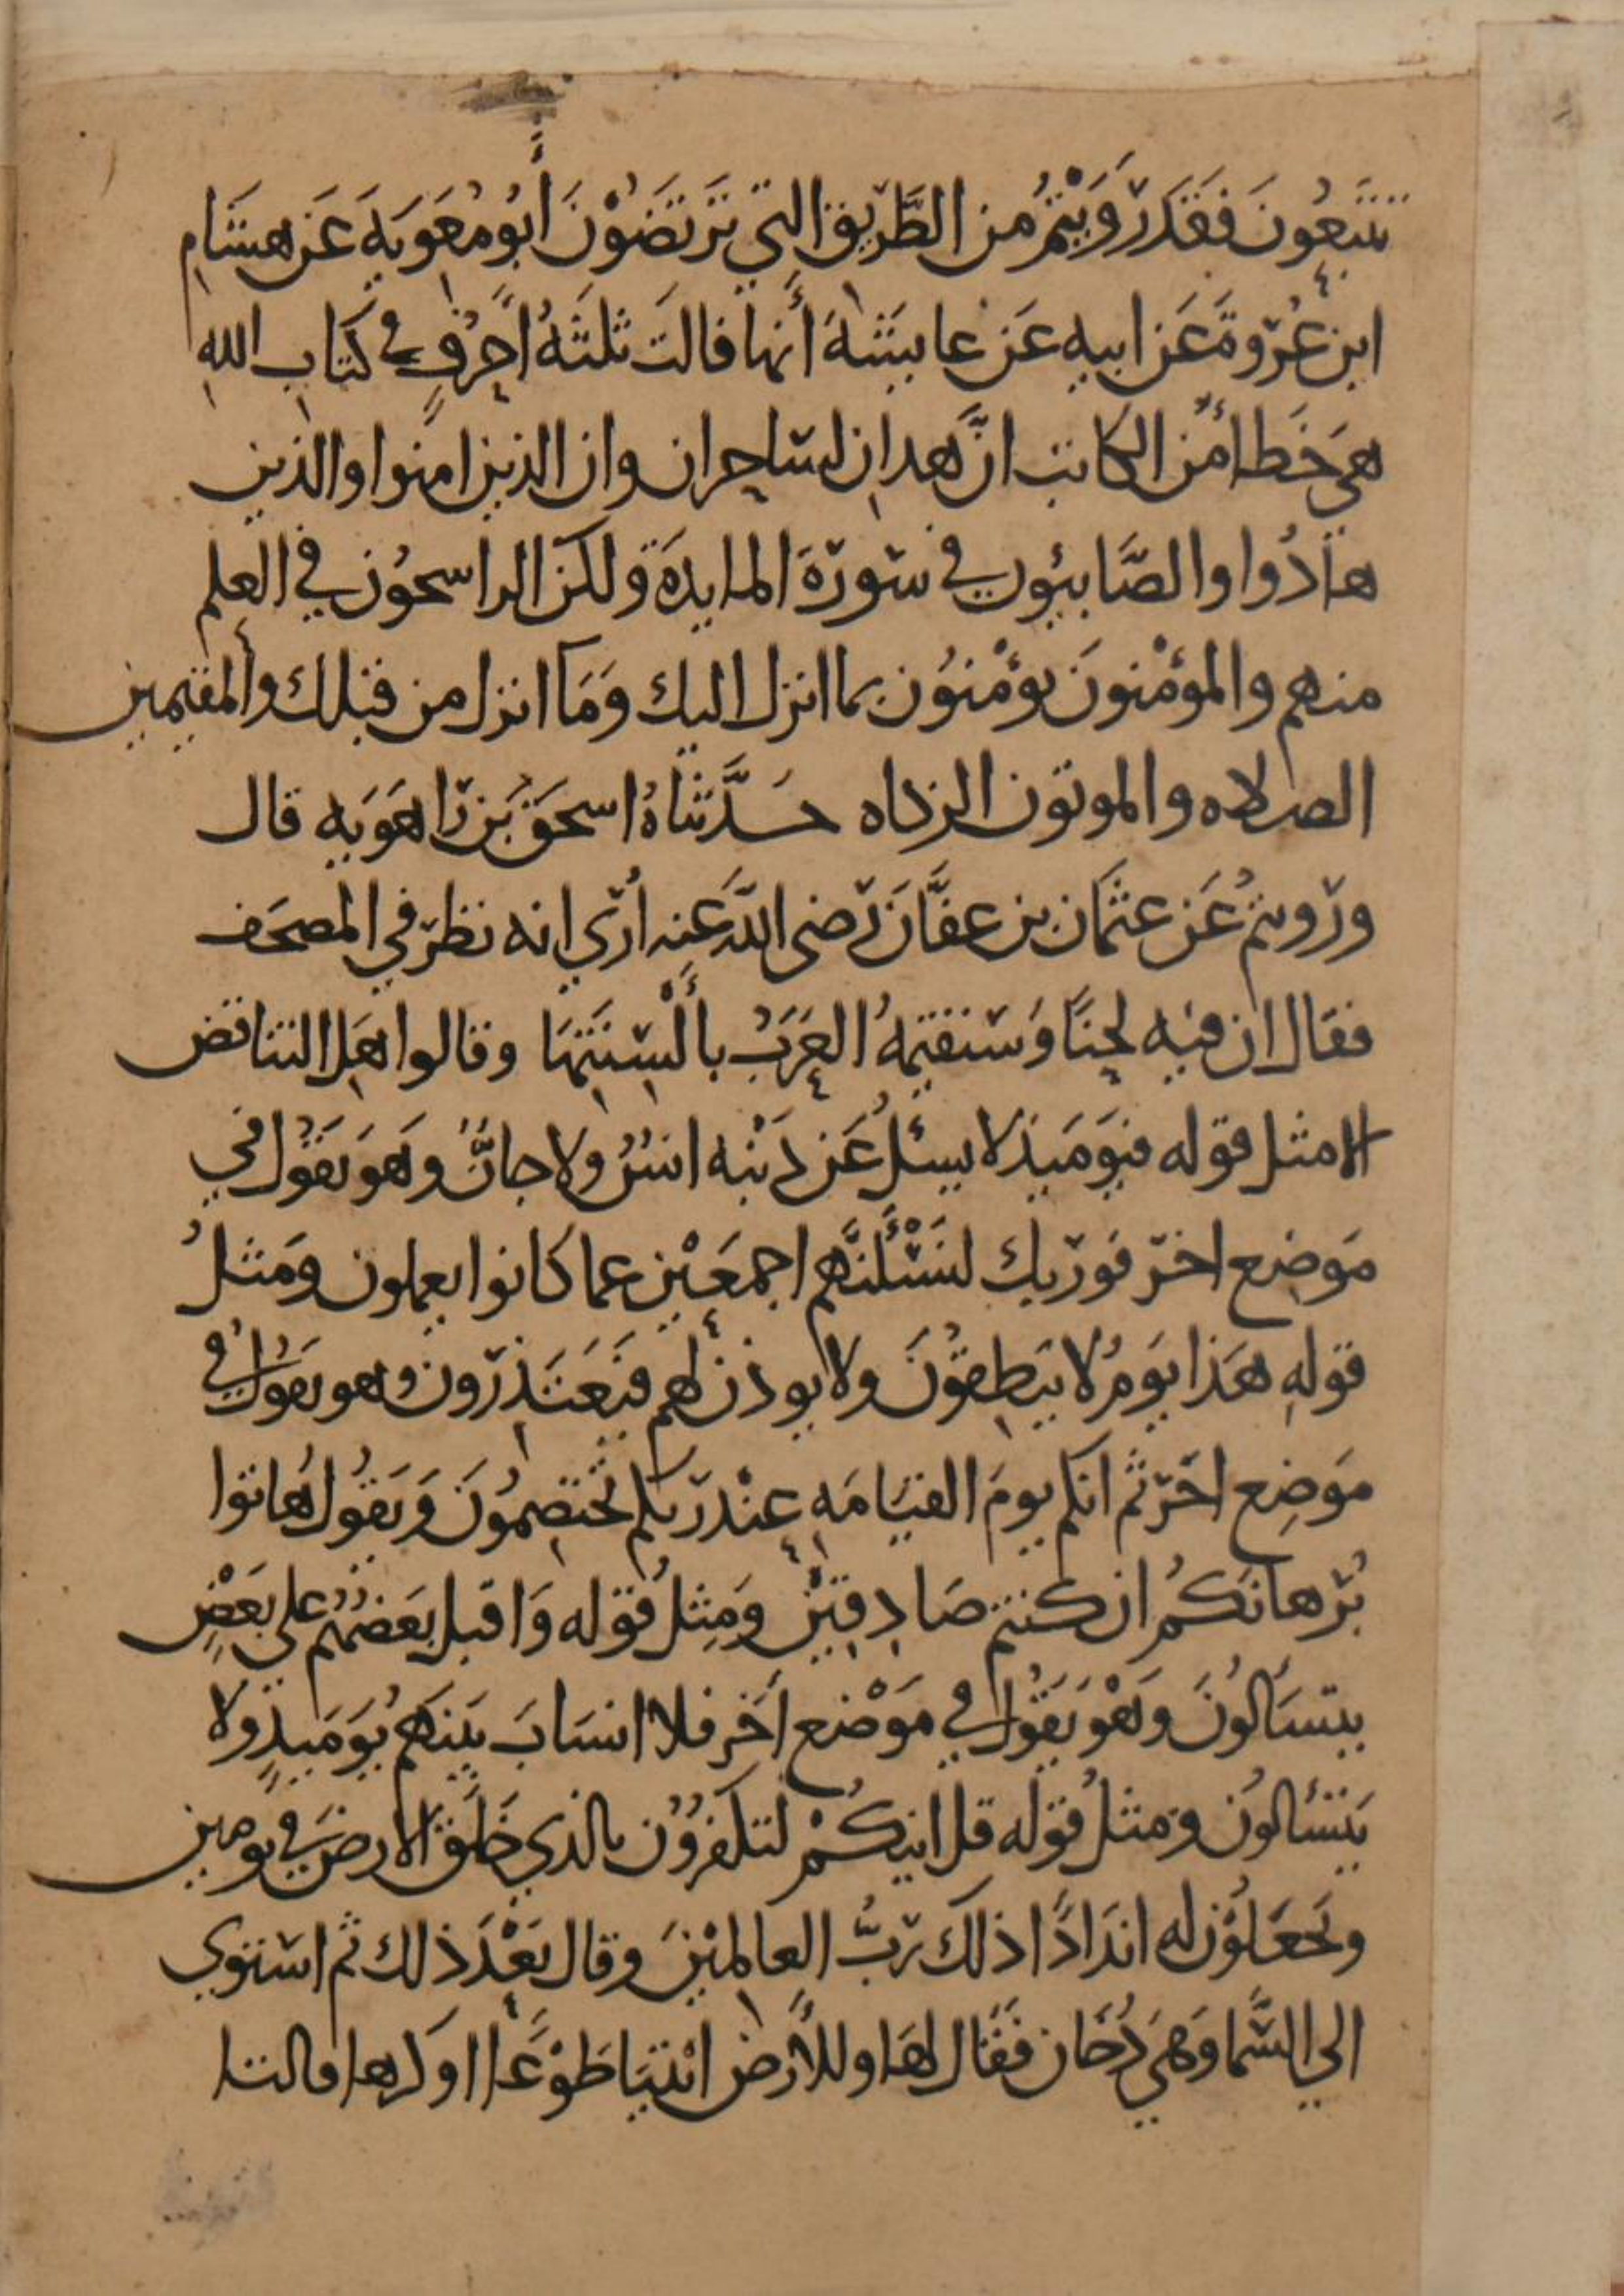 تتبعون فقد رَوَيْتُمْ من الطَّريق التي تَرتَضَوْنَ أَبُو مُعَوِيَةَ عَن هشَامِ
ابن عُرْوةَ عَن ابيهِ عَن عايشَةَ أَنها قالت ثلثَةُ أَحرُفٍ في كتاب اللهِ
هيَ خَطأ مِّن الكاتب انَّ هدان لساحران وان الذين امنوا والذين
هَادُوا والصَّابِيُون في سورةِ المايدَةِ ولكن الراسحُون في العلم
منهم والمؤمْنونَ يؤمْنُون بما انزل اليك وَمَا انزل من قبلك والمقيمين
الصلاه والموتون الزكاه حَدَّثَناهُ اسحَق بَن رَاهَوَيهِ قال
ورَويتمُ عَن عثمان بن عفَّان رَضي اللّه عَنه أُرَي انه نظرَ في المصحَف
فقال ان فيه لحنًا وَستقيمهُ العَرَبُ بأَلْسِنَتِهَا وقالوا هَل التناقض
الا مثل قوله فيَومَيذ لا يسئلُ عَن ذَنْبه انسٌ ولا جانٌّ وهوَ يقُول في
مَوضِع اخرَ فوَرَبك لنَسْئَلَنَّهم اجمعَيْن عما كانوا يعملون ومثلُ
قوله هَذا يَومُ لا ينطِقُونَ ولا يوذن لهم فيَعتَذِرَون وهو يَقول في
مَوضِع اخَرَ ثم انكم يومَ القيَامَهِ عِنْد رَبكم تَختصِمُونَ وَيَقُول هَاتوا
بُرَهانَكُم ان كنتم صَادِقِيْنَ وَمِثلُ قوله وَاقبل بَعضُهُم علي بَعْضٍ
يتسَالُونَ وَهْوَ يَقُول في مَوْضع أخر فلا انسَابَ بَينَهُم يَوَميذٍ ولا
يَتسَالُون ومثلُ قوله قل اينكُمْ لتكفرُوُن بالذي خَلَق الارضَ في يومين
وتَجعَلُوُن له اندَادًا ذلكَ رَبُّ العالميْنَ وقال بَعْدَ ذلك ثم استوي
الي السَّما وَهيَ دُخَان فَقَال لهَا وللأَرض ائتيَا طَوْعًا اوَ كرها قالتا